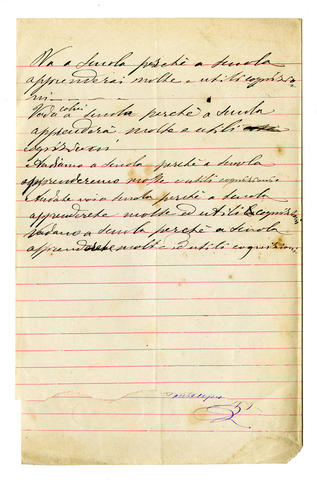 Va a scuola perchè a scuola
apprenderai molte e utili cognizio-
ni
Vada colui a scuola perchè a scuola
apprenderà molte e utili
cognizioni
Andiamo a scuola perchè a scuola
apprenderemo molte e utili cognizioni
Andate voi a scuola perchè a scuola
apprenderete molte ed utili cognizioni
Vadano a scuola perchè a scuola
apprenderanno molte ed utili cognizioni